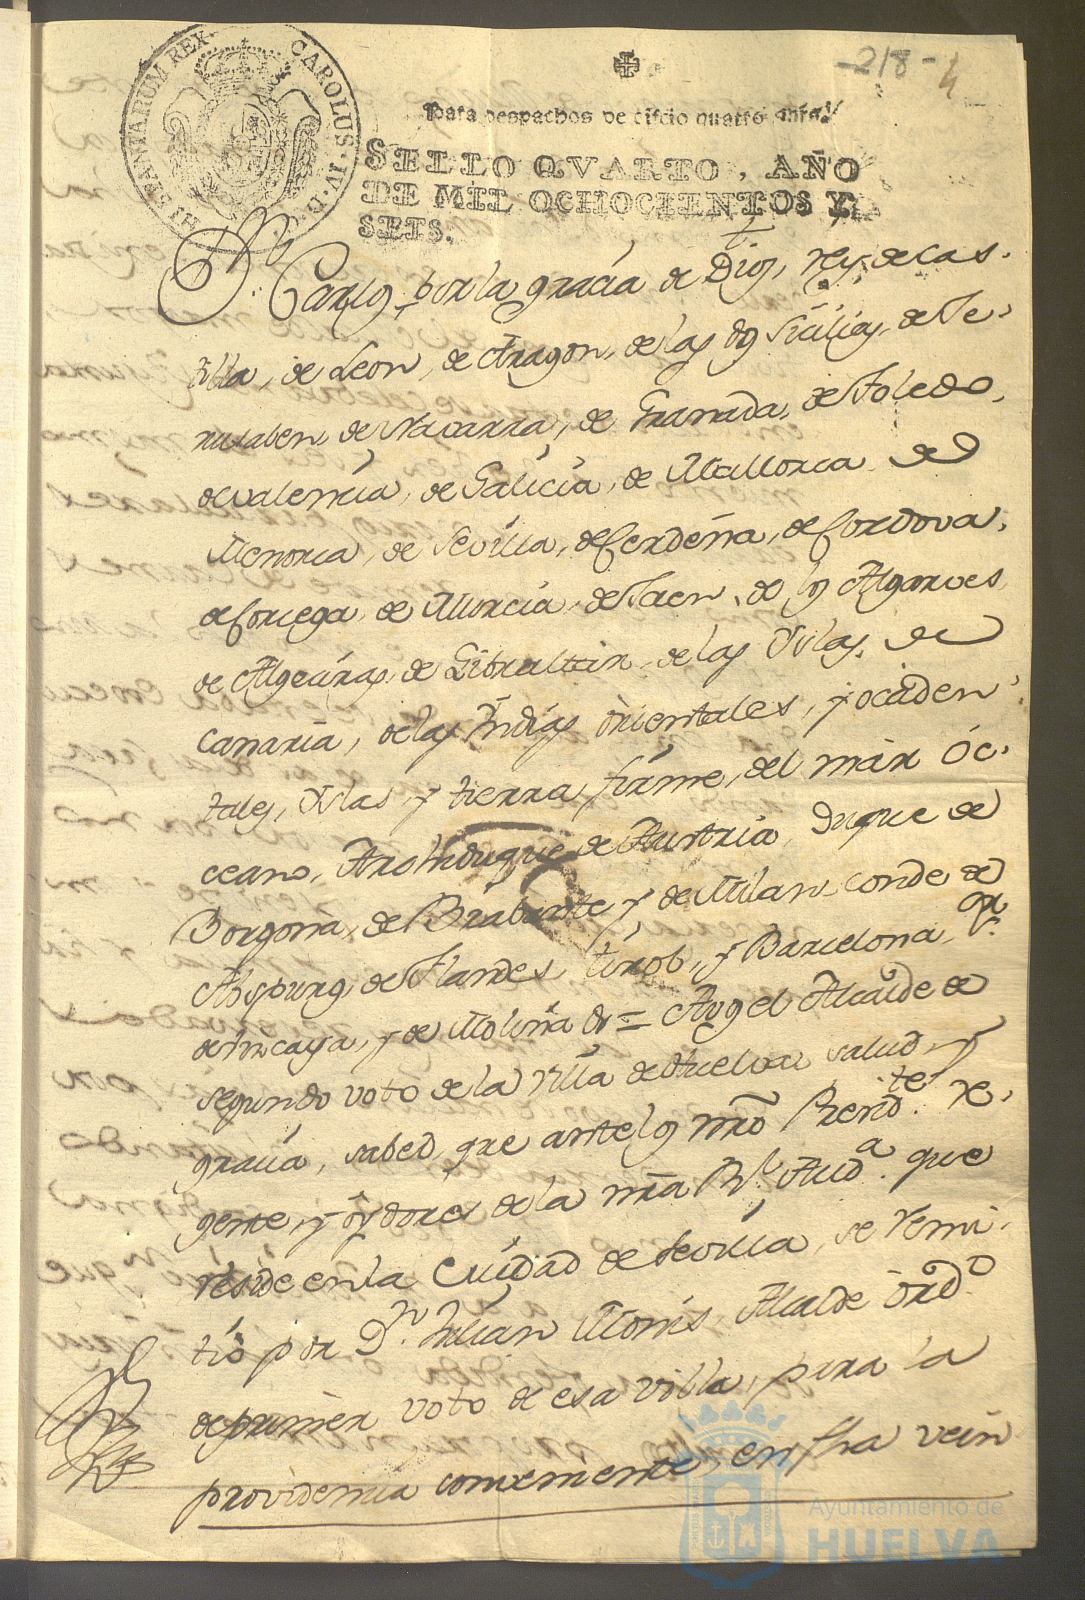 HISPANIARUM REX. CAROLUS. IV. D. G.
-218-
4
Para despachos de oficio quatro mrs.
SELLO QVARTO, AÑO
DE MIL OCHOCIENTOS Y
SEIS.
Dn. Carlos por la gracia de Dios, rey de Cas-
tilla, de Leon, de Aragon, de las dos Sicilias, de Je-
rusalen, de Navarra, de Granada, de Toledo,
de Valencia, de Galicia, de Mallorca de
Menorca, de Sevilla, de Cerdeña, de Cordova,
de Corcega, de Murcia, de Jaen, de los Algarves
de Algeciras, de Gibraltar, de las Yslas, de
Canaria, de las Yndias orientales, y occiden-
tales, Yslas, y tierra firme, del mar oc-
ceano, Archiduque de Austria, Duque de
Borgoña, de Brabante, y de Milan, Conde de
Abspurg, de Flandes, tirol, y Barcelona, Sr.
de Vizcaya, y de Molina &a = Angel Alcalde de
segundo voto de la Villa de Huelva salud, y
gracia, sabed, que ante los nros Presidte. re-
gente, y oydores de la nra Rl. Auda. que
reside en la Ciudad de Sevilla, se remi-
tió por Dn. Julian Moris, Alcalde ordo.
de primer voto de esa villa, para la
providencia conveniente, en fha vein
Ayuntamiento de
HUELVA